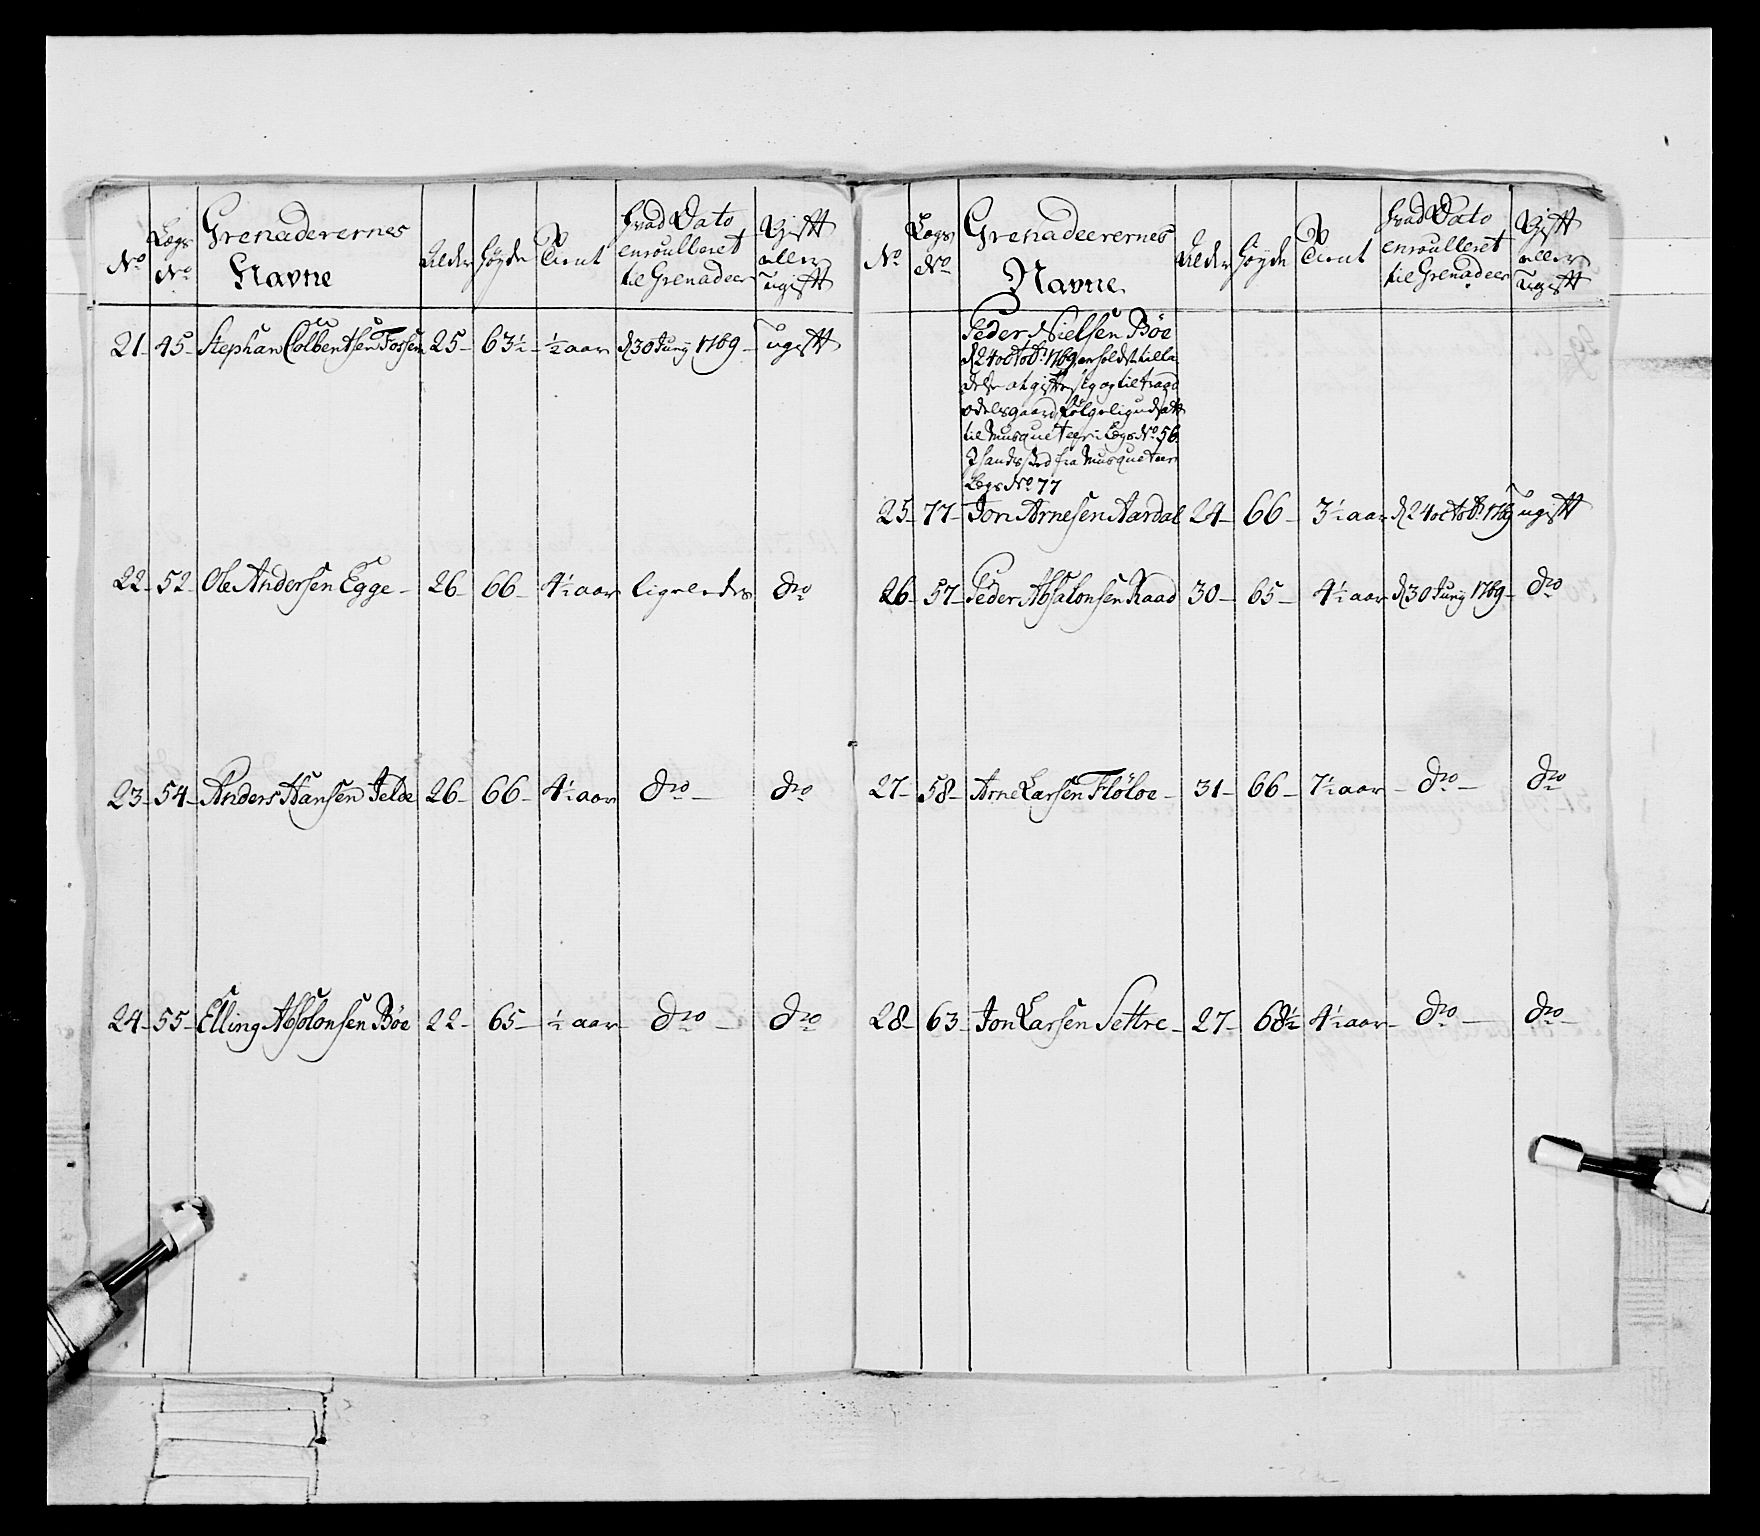 No | Lægs No | Grenaderernes Navne | Alder | Høyde | Tient | hvad Dato enroulleret til Grenadeer | Gift eller Ugift
21 - 45 - Stephan Colbentsen Fossen 25 - 63½ - ½ aar d 30 Juny 1769 - ugift
22 - 52 - Ole Andersen Egge - 26 - 66 - 4½ aar ligeledes do
23 - 54 - Anders Hansen Jelde 26 - 66 - 4½ aar do - do
24 - 55 - Elling Absolonsen Bøe 22 - 65 - ½ aar - do - do
No | Lægs No | Grenadeerernes Navne | Alder | Høyde | Tient | hvad Dato enroulleret til Grenadeer | Gift eller Ugift
Peder Nielsen Bøe
d 24 octobr 1769 erholdt tilla
delse at gifte sig og tiltraad
odelsgaard følgelig udsatt
til Musqueteer i Lægs No 56.
I hands sted fra Musqueteer
Lægs No 77
25 - 77 - Jon Arnesen Aardal 24 - 66 - 3½ aar d 24 octobr 1769 ugift
26 - 57 - Peder Absalonsen Raad 30 - 65 - 4½ aar d 30 Juny 1769 - do
27 - 58 - Arne Larsen Fløløe - 31 - 66 - 7½ aar - do - do
28 - 63 - Jon Larsen Settre - 27 - 68½ 4½ aar - do - do -